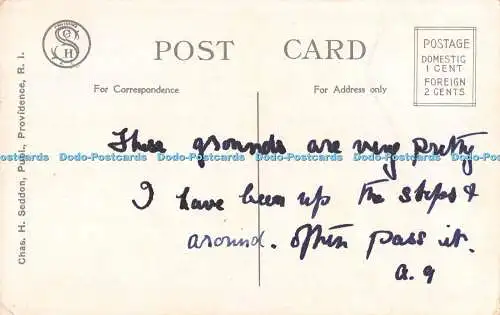 POST CARD
POSTAGE
DOMESTIC
1 CENT
FOREIGN
2 CENTS
For Correspondence
For Address only
These grounds are very pretty
Dodo-Postcards Dodo-Postcards Dodo-Postcards Dodo-Postcards Dodo-Postcards
I have been up the steps &
around. Often pass it.
a. g
Chas. H. Seddon, Publ., Providence, R. I.